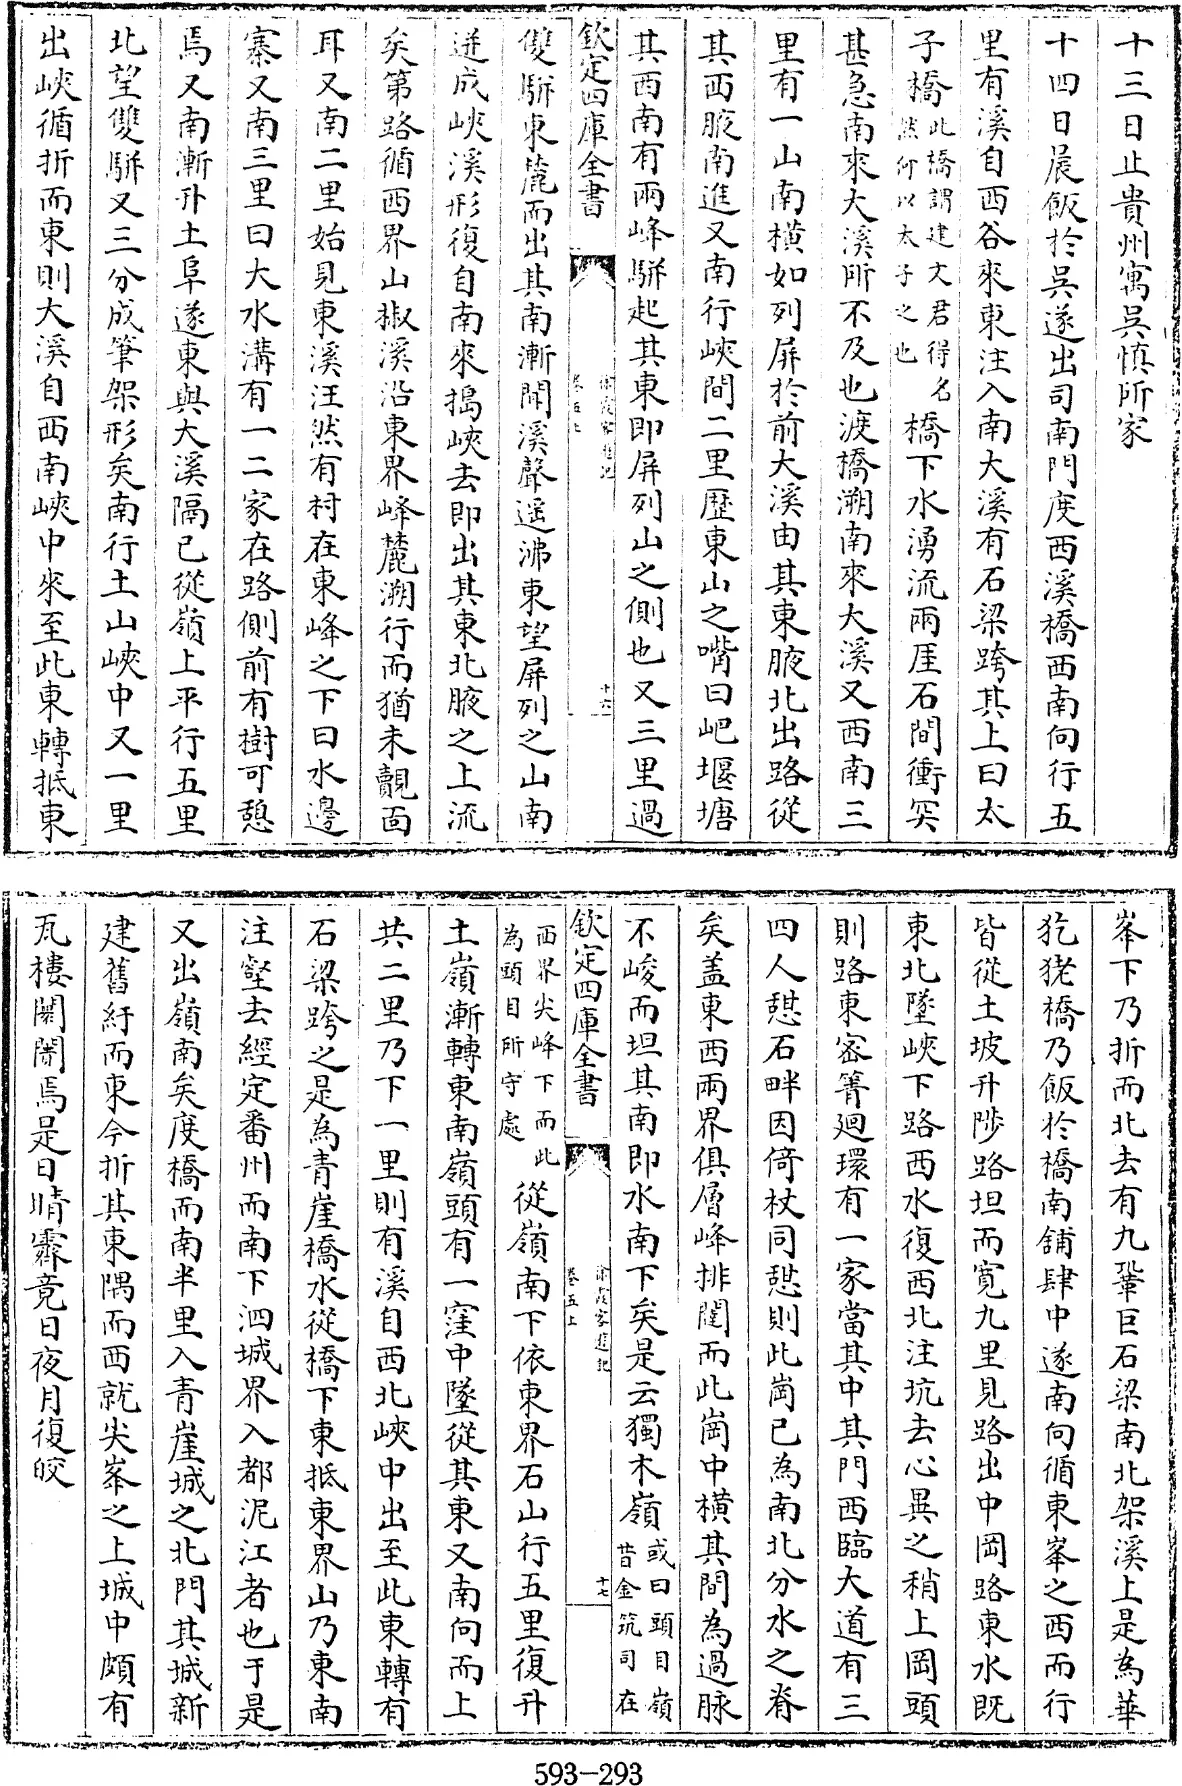 十三日止貴州寓吳慎所家
十四日晨飯於吳遂出司南門度西溪橋西南向行五
里有溪自西谷來東注入南大溪有石梁跨其上曰太
子橋此橋謂建文君得名然何以太子之也橋下水湧流兩厓石間衝突
甚急南來大溪所不及也渡橋溯南來大溪又西南三
里有一山南橫如列屏於前大溪由其東腋北出路從
其西腋南進又南行峽間二里歷東山之嘴曰岜堰塘
其西南有兩峰駢起其東即屏列山之側也又三里過
欽定四庫全書
徐霞客遊記
卷五上
十六
雙駢東麓而出其南漸開溪聲遥沸東望屏列之山南
迸成峽溪形復自南來搗峽去即出其東北腋之上流
矣第路循西界山椒溪沿東界峰麓溯行而猶未覿面
耳又南二里始見東溪汪然有村在東峰之下曰水邊
寨又南三里曰大水溝有一二家在路側前有樹可憩
焉又南漸升土阜遂東與大溪隔已從嶺上平行五里
北望雙駢又三分成筆架形矣南行土山峽中又一里
出峽循折而東則大溪自西南峽中來至此東轉抵東
峯下乃折而北去有九鞏巨石梁南北架溪上是為華
犵狫橋乃飯於橋南舖肆中遂南向循東峯之西而行
皆從土坡升陟路坦而寛九里見路出中岡路東水既
東北墜峽下路西水復西北注坑去心異之稍上岡頭
則路東密箐廻環有一家當其中其門西臨大道有三
四人憇石畔因倚杖同憇則此崗已為南北分水之脊
矣盖東西兩界俱層峰排闥而此崗中橫其間為過脉
不峻而坦其南即水南下矣是云獨木嶺或曰頭目嶺昔金筑司在
欽定四庫全書
徐霞客遊記
卷五上
十七
西界尖峰下而此為頭目所守處從嶺南下依東界石山行五里復升
土嶺漸轉東南嶺頭有一窪中墜從其東又南向而上
共二里乃下一里則有溪自西北峽中出至此東轉有
石梁跨之是為青崖橋水從橋下東抵東界山乃東南
注壑去經定番州而南下泗城界入都泥江者也于是
又出嶺南矣度橋而南半里入青崖城之北門其城新
建舊紆而東今折其東隅而西就尖峯之上城中頗有
瓦樓闤闠焉是日晴霽竟日夜月復皎
593-293